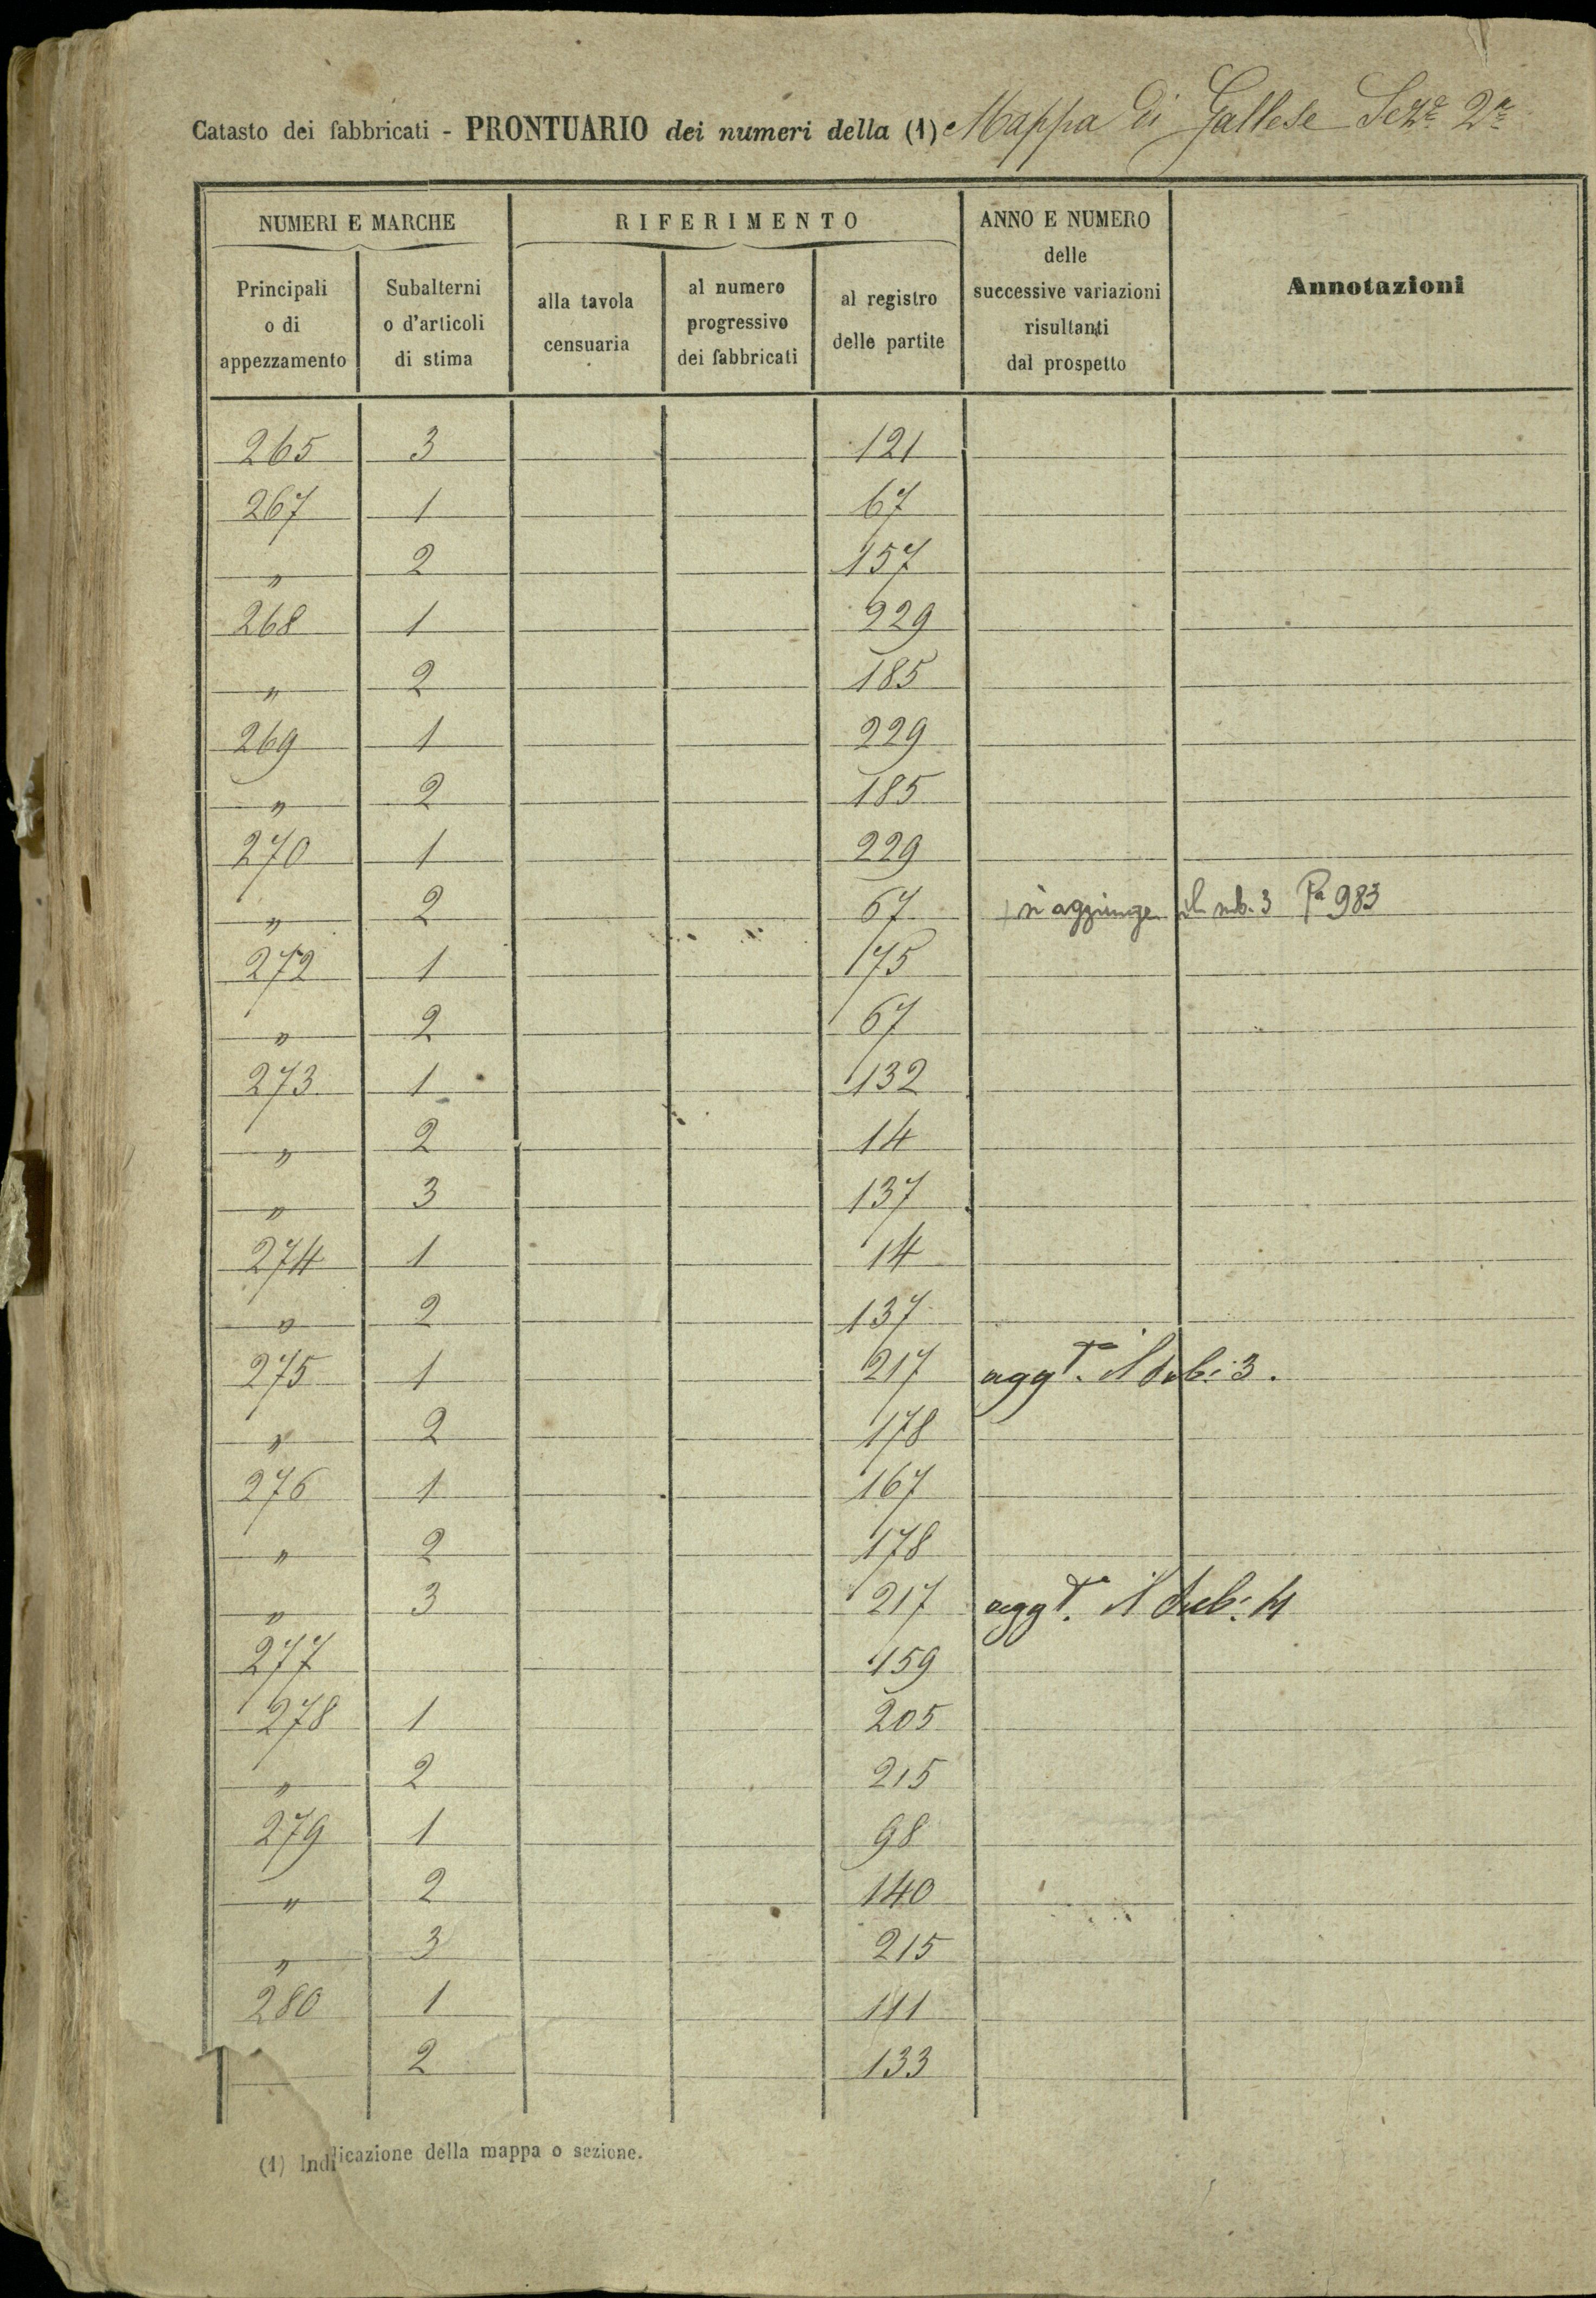 Catasto dei fabbricati - PRONTUARIO dei numeri della (1) Mappa di Gallese Sez.e 2a
NUMERI E MARCHE RIFERIMENTO ANNO E NUMERO delle successive variazioni risultanti dal prospetto Annotazioni
Principali o di appezzamento Subalterni o d'articoli di stima alla tavola censuaria al numero progressivo dei fabbricati al registro delle partite
265 3 121
267 1 67
" 2 157
268 1 229
" 2 185
269 1 229
" 2 185
270 1 229
" 2 67 + si aggiunge il sub. 3 Pa 983
272 1 175
" 2 67
273 1 132
" 2 14
" 3 137
274 1 14
" 2 137
275 1 217 aggta. il sub: 3.
" 2 178
276 1 167
" 2 178
" 3 217 aggta. il sub: 4
277 159
278 1 205
" 2 215
279 1 98
" 2 140
" 3 215
280 1 111
2 133
(1) Indicazione della mappa o sezione.